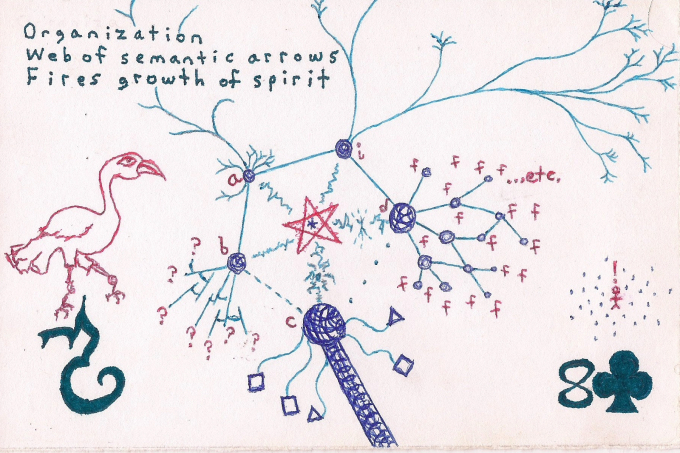 Organization
Web of semantic arrows
Fires growth of spirit
i
a
f f f f f ...etc.
d f f f f
b f
? ? f f
c f f f f
? ? ? ? ?
!
8